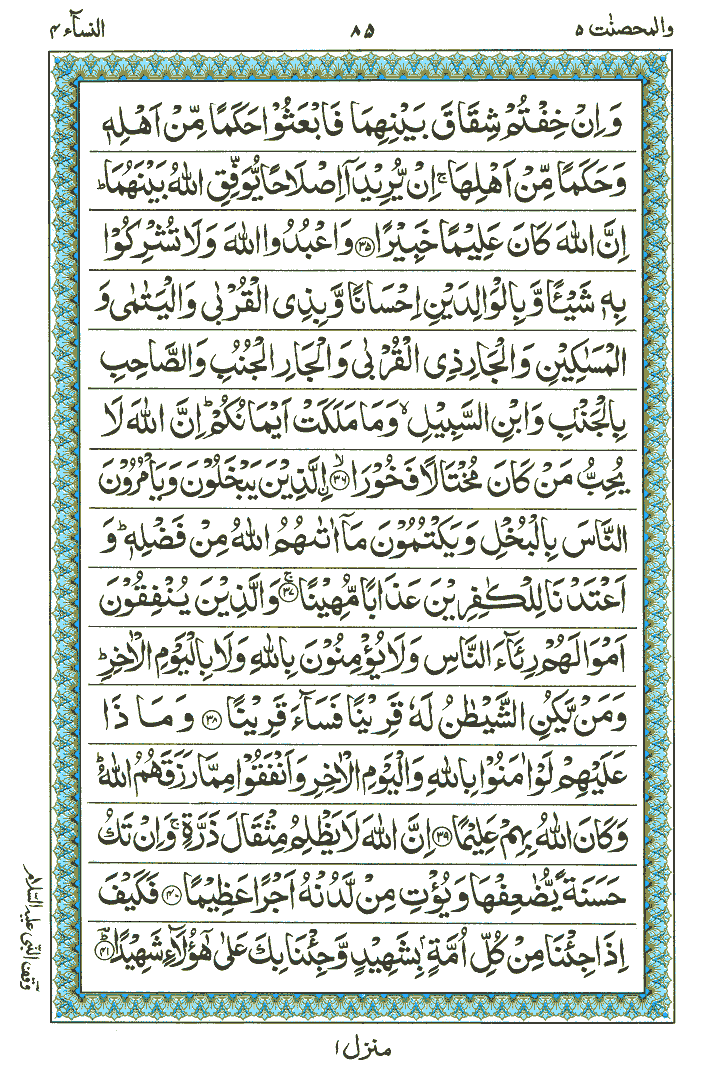 والمحصنٰت ۵ ۸۵ النسآء ۴
وَاِنْ خِفْتُمْ شِقَاقَ بَيْنِهِمَا فَابْعَثُوْا حَكَمًا مِّنْ اَهْلِهٖ
وَحَكَمًا مِّنْ اَهْلِهَا ۚ اِنْ يُّرِيْدَاۤ اِصْلَاحًا يُّوَفِّقِ اللّٰهُ بَيْنَهُمَا ؕ
اِنَّ اللّٰهَ كَانَ عَلِيْمًا خَبِيْرًا ﴿۳۵﴾ وَاعْبُدُوا اللّٰهَ وَلَا تُشْرِكُوْا
بِهٖ شَيْـًٔا وَّ بِالْوَالِدَيْنِ اِحْسَانًا وَّ بِذِى الْقُرْبٰى وَالْيَتٰمٰى وَ
الْمَسٰكِيْنِ وَالْجَارِ ذِى الْقُرْبٰى وَالْجَارِ الْجُنُبِ وَالصَّاحِبِ
بِالْجَنْۢبِ وَابْنِ السَّبِيْلِ ۙ وَمَا مَلَكَتْ اَيْمَانُكُمْ ؕ اِنَّ اللّٰهَ لَا
يُحِبُّ مَنْ كَانَ مُخْتَالًا فَخُوْرَا ۙ﴿۳۶﴾ اۨلَّذِيْنَ يَبْخَلُوْنَ وَيَاْمُرُوْنَ
النَّاسَ بِالْبُخْلِ وَيَكْتُمُوْنَ مَاۤ اٰتٰٮهُمُ اللّٰهُ مِنْ فَضْلِهٖ ؕ وَ
اَعْتَدْنَا لِلْكٰفِرِيْنَ عَذَابًا مُّهِيْنًا ۚ﴿۳۷﴾ وَالَّذِيْنَ يُنْفِقُوْنَ
اَمْوَالَهُمْ رِئَآءَ النَّاسِ وَلَا يُؤْمِنُوْنَ بِاللّٰهِ وَلَا بِالْيَوْمِ الْاٰخِرِ ؕ
وَمَنْ يَّكُنِ الشَّيْطٰنُ لَهٗ قَرِيْنًا فَسَآءَ قَرِيْنًا ﴿۳۸﴾ وَمَا ذَا
عَلَيْهِمْ لَوْ اٰمَنُوْا بِاللّٰهِ وَالْيَوْمِ الْاٰخِرِ وَاَنْفَقُوْا مِمَّا رَزَقَهُمُ اللّٰهُ ؕ
وَكَانَ اللّٰهُ بِهِمْ عَلِيْمًا ﴿۳۹﴾ اِنَّ اللّٰهَ لَا يَظْلِمُ مِثْقَالَ ذَرَّةٍ ۚ وَاِنْ تَكُ
حَسَنَةً يُّضٰعِفْهَا وَيُؤْتِ مِنْ لَّدُنْهُ اَجْرًا عَظِيْمًا ﴿۴۰﴾ فَكَيْفَ
اِذَا جِئْنَا مِنْ كُلِّ اُمَّةٍۭ بِشَهِيْدٍ وَّجِئْنَا بِكَ عَلٰى هٰٓؤُلَآءِ شَهِيْدًا ؕ﴿۴۱﴾
وقف النبی علیہ السلام
منزل ۱